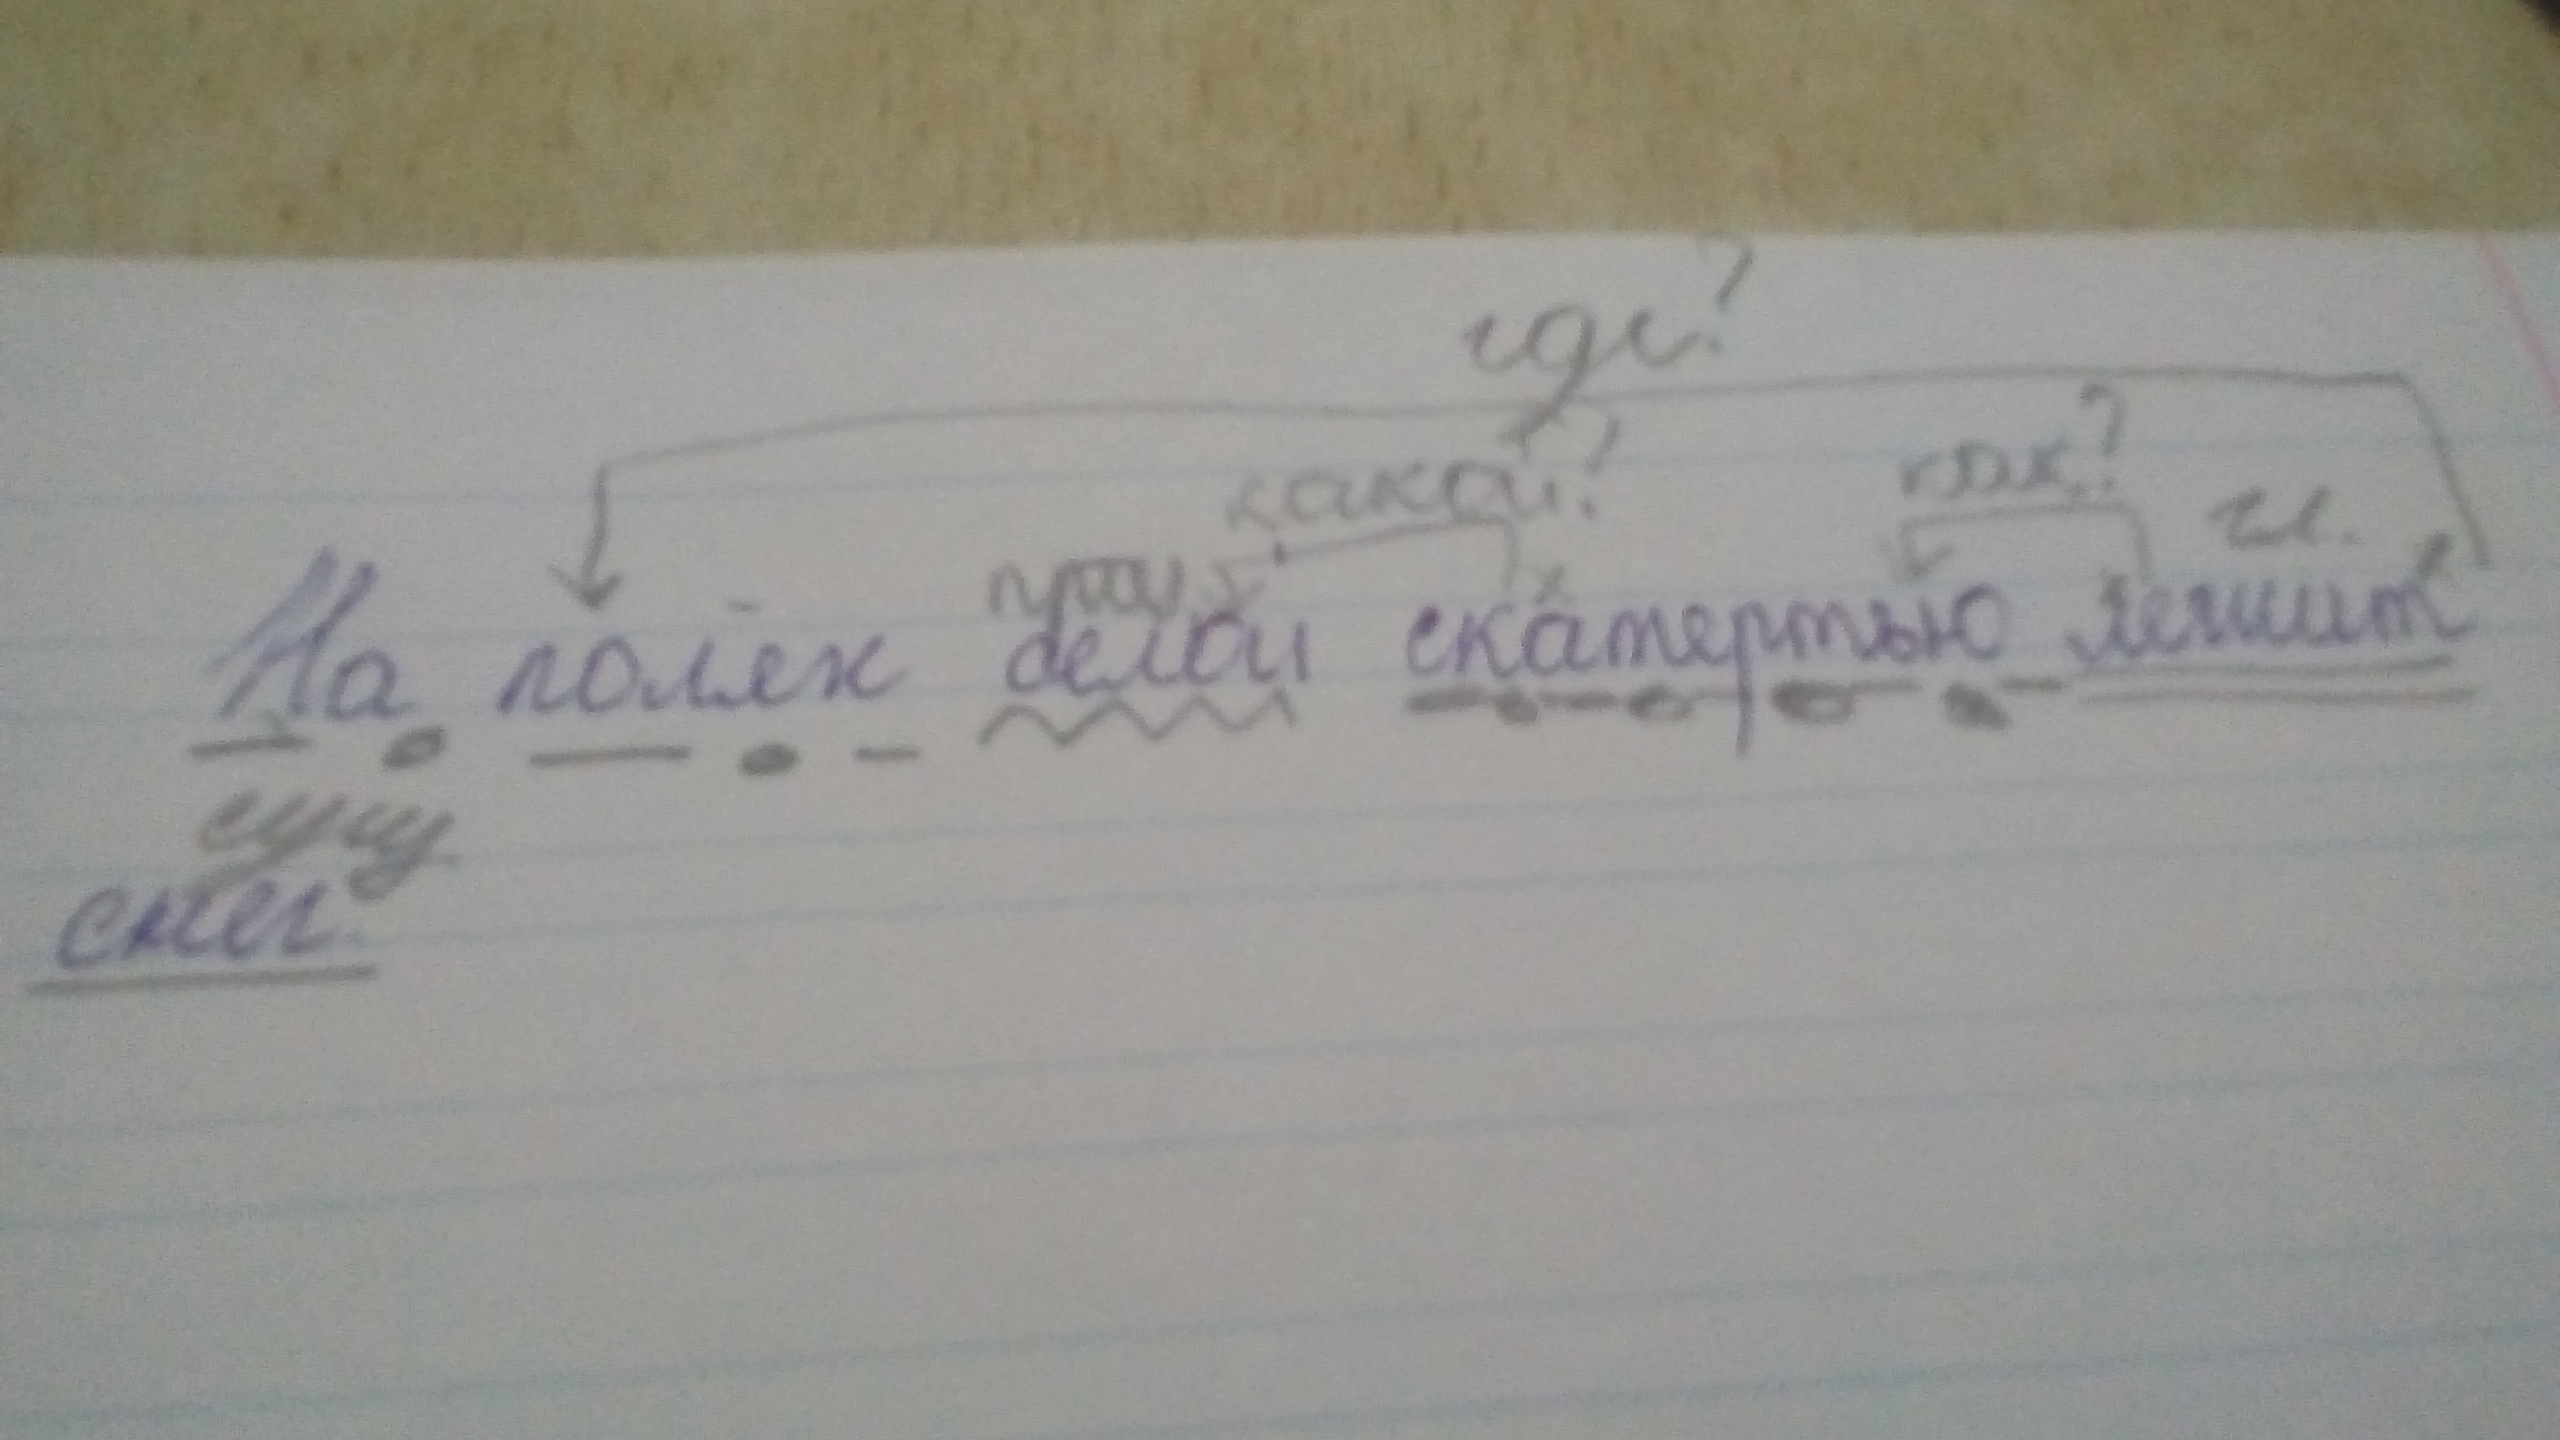 где?
какой? как?
прил гл.
На полях белой скатертью лежит
сущ
снег.